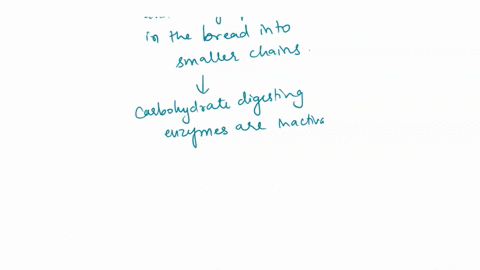 in the bread into
smaller chains.
↓
Carbohydrate digesting
enzymes are inactive